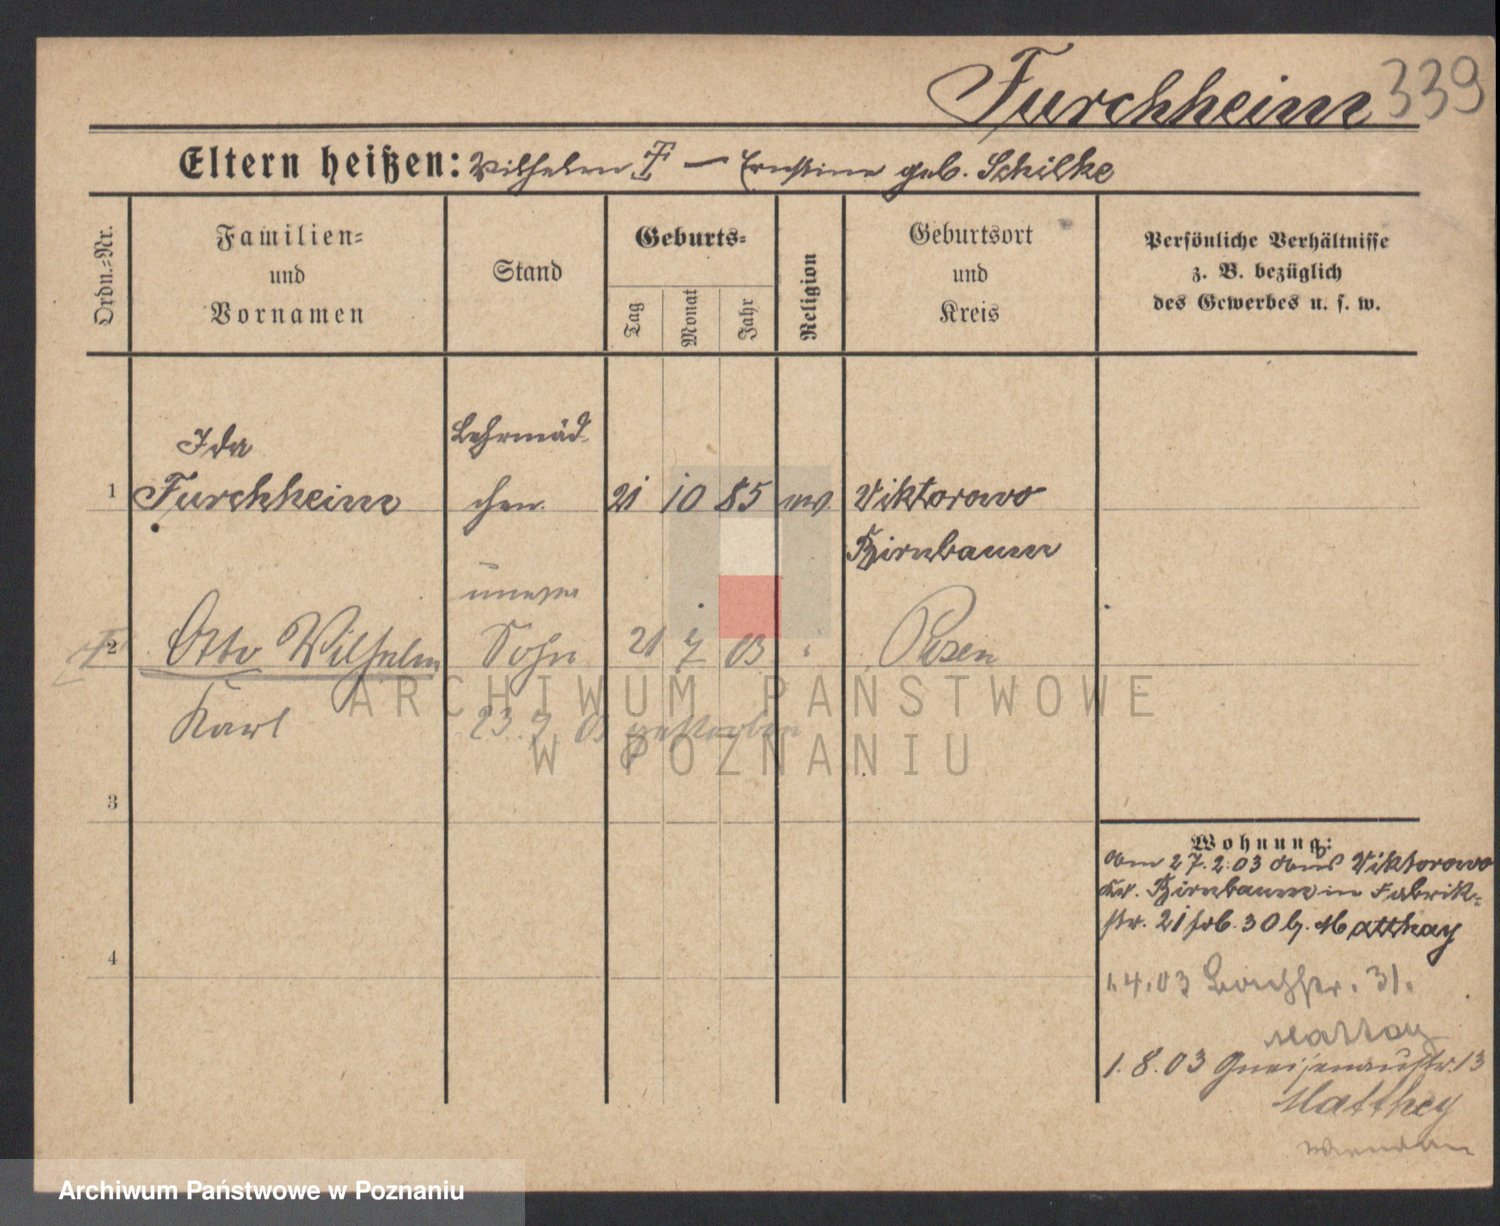 Furchheim 339
Eltern heißen: Wilhelm F — Ernstine geb. Schilke
Ordn.-Nr.
Familien-
und
Vornamen
Stand
Geburts-
Tag
Monat
Jahr
Religion
Geburtsort
und
Kreis
Persönliche Verhältnisse
z. B. bezüglich
des Gewerbes u. s. w.
Ida Lehrmäd-
1 Furchheim chen 21 10 85 ev. Viktorowo
Birnbaum
2 Otto Wilhelm Sohn 21 7 03 Posen
Karl 23. 7. 03 gestorben
3
4
Wohnung:
am 27.2.03 aus Viktorowo
Kr. Birnbaum in Fabrik-
str. 21 b. Matthay
1.4.03 31.
1.8.03 Gneisenaustr. 13
Matthey
ARCHIWUM PAŃSTWOWE
W POZNANIU
Archiwum Państwowe w Poznaniu